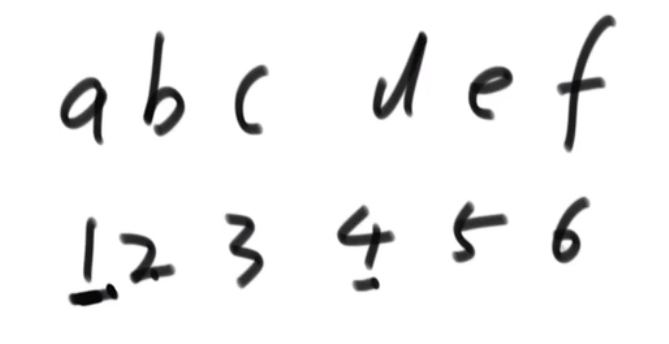 a b c d e f
1 2 3 4 5 6